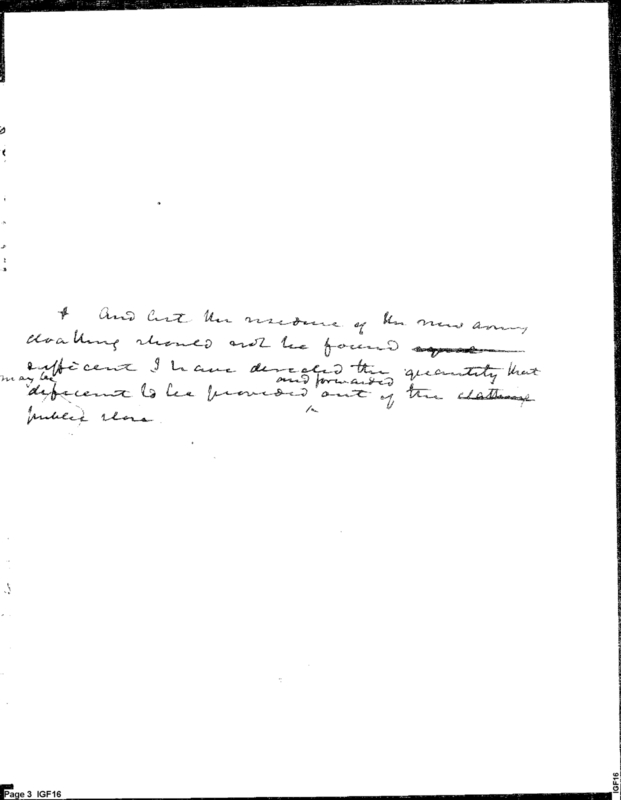 + And lest the residue of the new army
cloathing should not be found equal
sufficient I have directed the quantity that
may be deficient to be provided and forwarded out of the
public store
Page 3 IGF16
IGF16